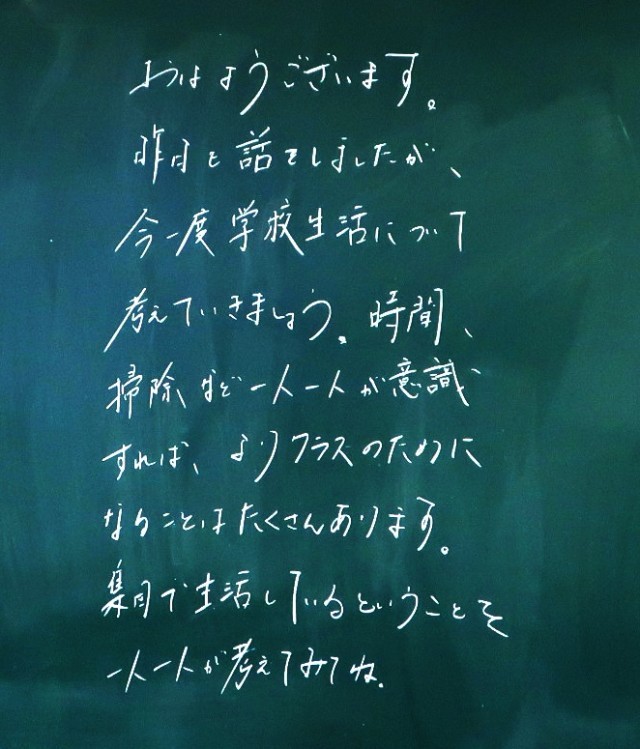 おはようございます。
昨日も話をしましたが、
今一度学校生活について
考えていきましょう。時間、
掃除など一人一人が意識
すれば、よりクラスのために
なることはたくさんあります。
集団で生活しているということを
一人一人が考えてみてね。